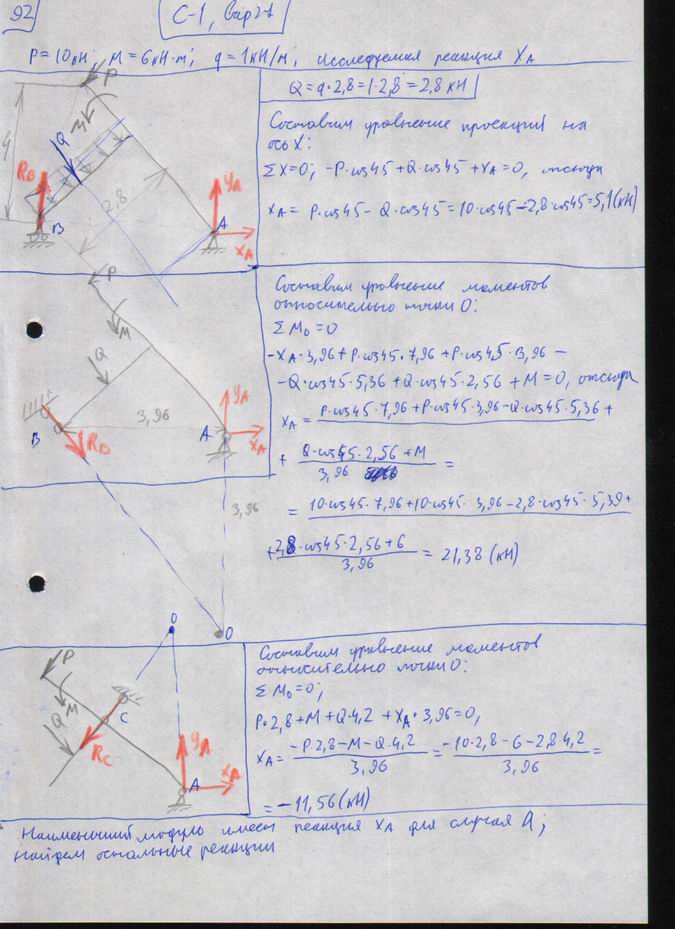 92
С-1, вар 27
P=10кН; M=6кН·м; q=1кН/м; исследуемая реакция XA
P
M
Q
4
RB
B
2,8
YA
A
XA
Q=q·2,8=1·2,8=2,8 кН
Составим уравнение проекций на
ось X:
ΣX=0; -P·cos45+Q·cos45+XA=0, отсюда
XA= P·cos45- Q·cos45=10·cos45-2,8·cos45=5,1(кН)
P
M
Q
3,96
B
RB
YA
A
XA
3,96
O
Составим уравнение моментов
относительно точки O:
ΣMO=0
-XA·3,96+P·cos45·7,96+P·cos45·3,96-
-Q·cos45·5,36+Q·cos45·2,56+M=0, отсюда
XA= P·cos45·7,96+P·cos45·3,96-Q·cos45·5,36+
+ Q·cos45·2,56+M
3,96 =
= 10·cos45·7,96+10·cos45·3,96-2,8·cos45·5,39+
+2,8·cos45·2,56+6
3,96 = 21,38(кН)
O
P
M
Q
C
RC
YA
A
XA
Составим уравнение моментов
относительно точки O:
ΣMO=0;
P·2,8+M+Q·4,2+XA·3,96=0,
XA= -P·2,8-M-Q·4,2 = -10·2,8-6-2,8·4,2 =
3,96 3,96
= -11,56(кН)
Наименьший модуль имеет реакция XA для случая А;
найдем остальные реакции